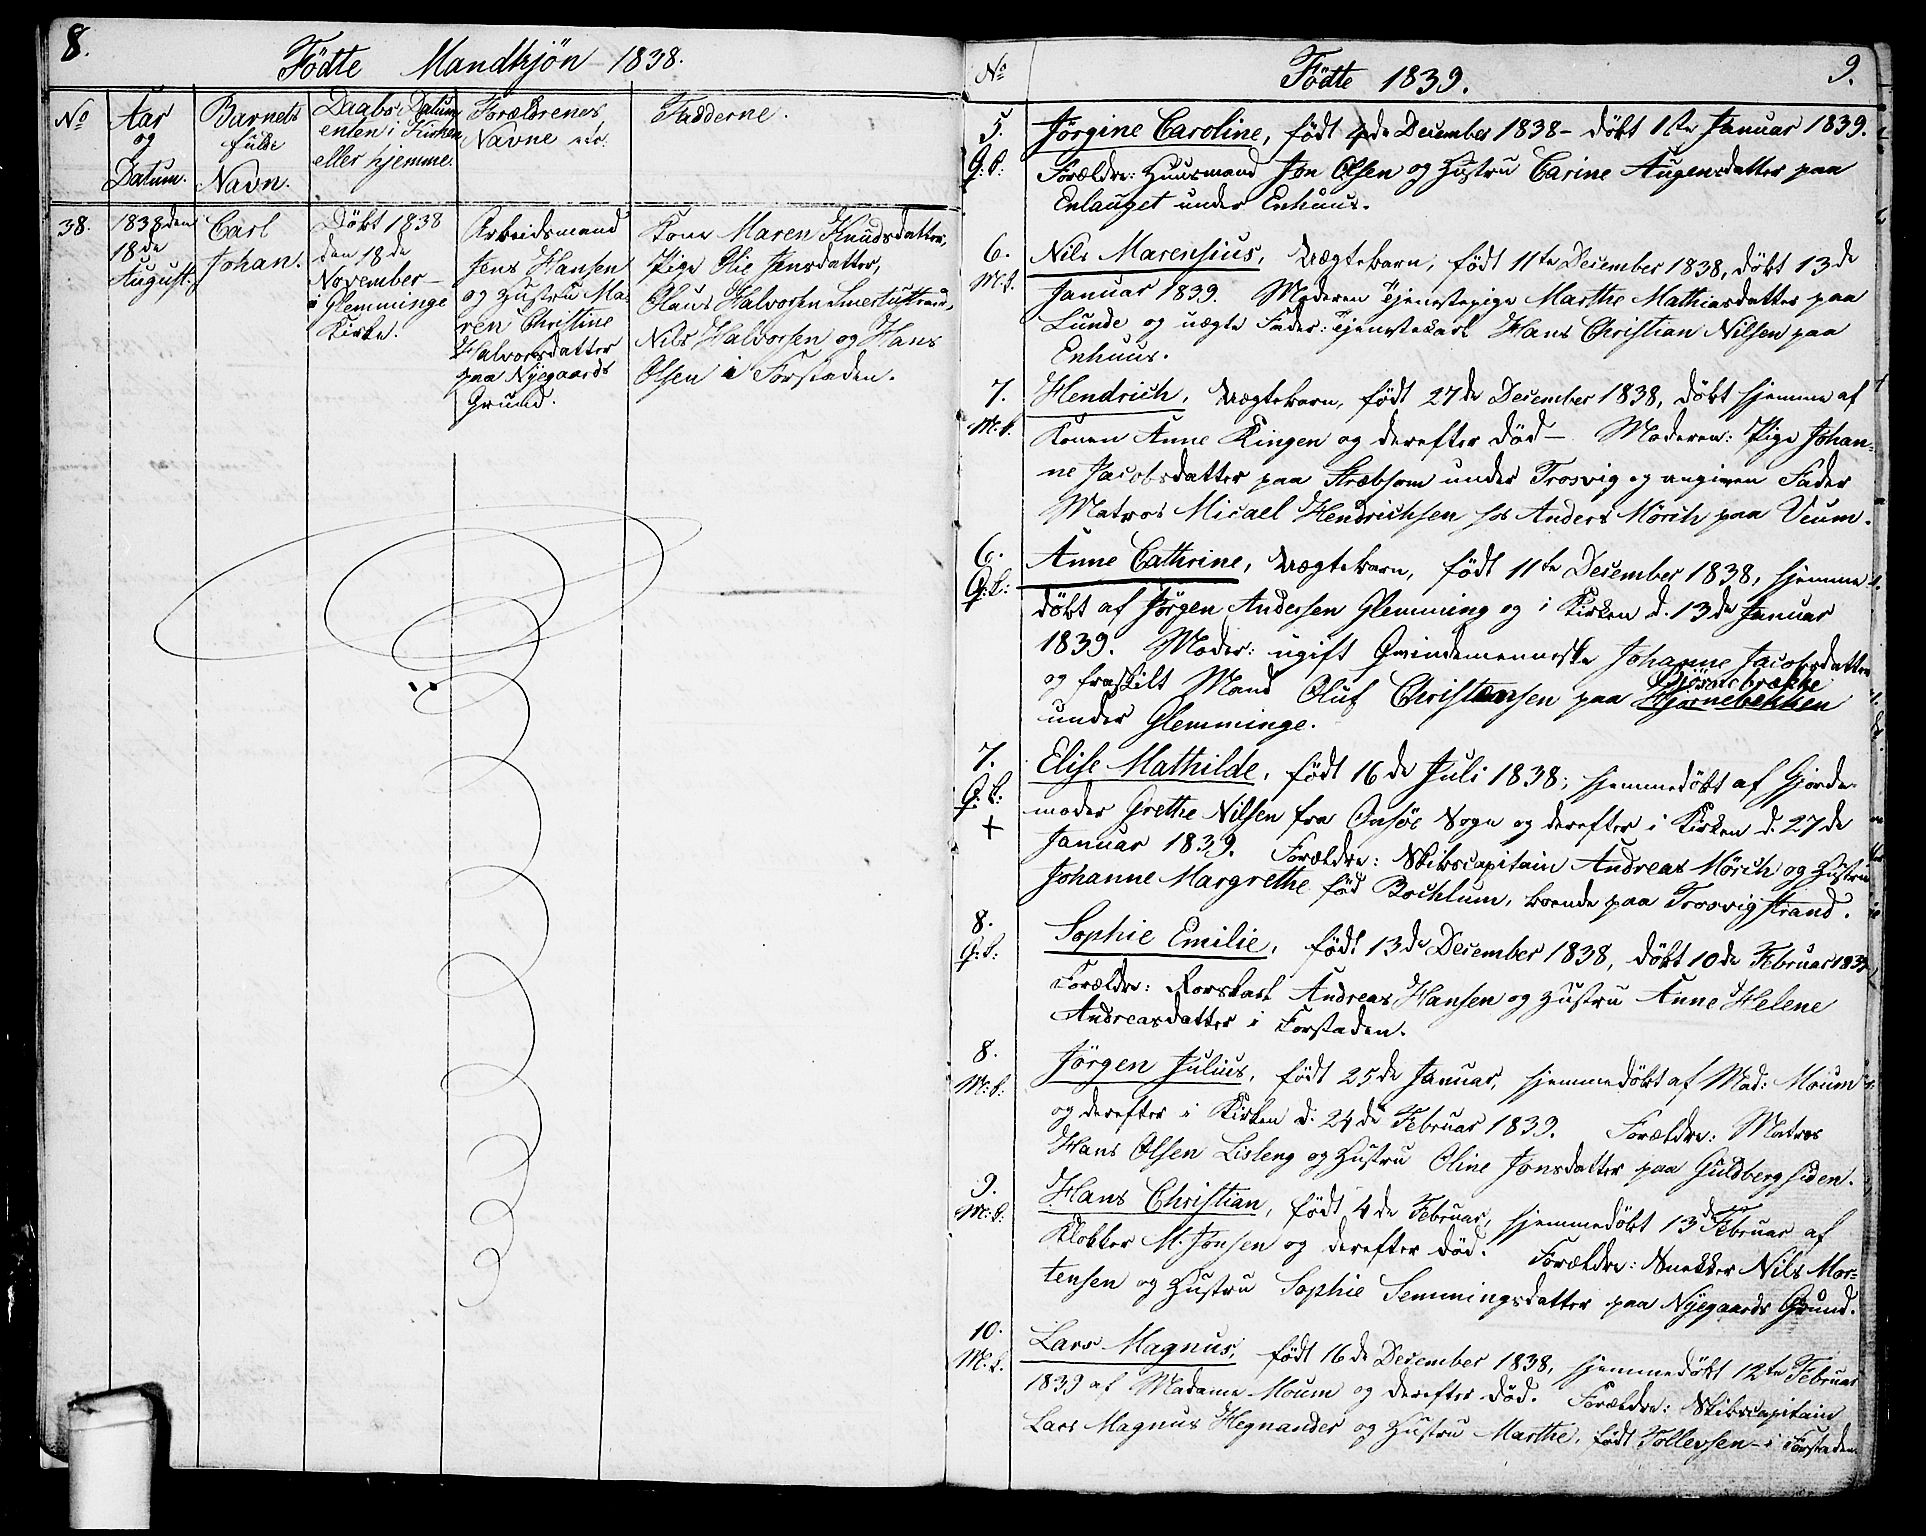 8.
Födte Mandkjön 1838.
No
Aar
og
Datum.
Barnets
fulde
Navn.
Daabs-Datum
enten i Kirken
eller hjemme.
Forældrenes
Navne etc.
Fadderne.
38.
1838 den
18de
August.
Carl
Johan.
Döbt 1838
den 18de
November
i Glemminge
Kirke.
Arbeidsmand
Jens Hansen
og Hustru Ma-
ren Christine
Halvorsdatter
paa Nyegaards
Grund.
Kone Maren Knudsdatter,
Pige Olie Jensdatter,
Claus Halvorsen
Nils Halvorsen og Hans
Olsen i Forstaden.
No
Födte 1839.
9.
5.
Q: k:
Jörgine Caroline, födt 4de December 1838 - döbt 1ste Januar 1839.
Forældre: Huusmand Jon Olsen og Hustru Carine Augensdatter paa
Enlauget under Enhuus.
6.
M. k.
Nils Marensius, Uægtebarn, födt 11te December 1838, döbt 13de
Januar 1839. Moderen Tjenestepige Marthe Mathiasdatter paa
Lunde og uægte Fader: Tjenestekarl Hans Christian Nilsen paa
Enhuus.
7.
M. k.
Hendrich, Uægtebarn, födt 27de December 1838, döbt hjemme af
Konen Anne Kingen og derefter död - Moderen: Pige Johan-
ne Jacobsdatter paa Stræbsom under Trosvig og angiven Fader
Matros Micael Hendrichsen hos Anders Mörch paa Veum.
6.
Q: k:
Anne Cathrine, Uægtebarn, födt 11te December 1838, hjemme
döbt af Jörgen Andersen Glemming og i Kirken d. 13de Januar
1839. Moder: ugift Qvindemenneske Johanne Jacobsdatter
og fraskilt Mand Oluf Christensen paa Björnebekken
Björnebrække
under Glemminge.
7.
Q: k:
+
Elise Mathilde, födt 16de Juli 1838, hjemmedöbt af Gjorde-
moder Grethe Nilsen fra Onsöe Sogn og derefter i Kirken d. 27de
Januar 1839. Forældre: Skibscapitain Andreas Mörch og Hustru
Johanne Margrethe föd Bochlum, boende paa Trosvigstrand.
8.
Q: k:
Sophie Emilie, födt 13de December 1838, döbt 10de Februar 1839
Forældre: Rorskarl Andreas Hansen og Hustru Anne Helene
Andreasdatter i Forstaden.
8.
M: k:
Jörgen Julius, födt 25de Januar, hjemmedöbt af Mad: Moum
og derefter i Kirken d. 24de Februar 1839. Forældre: Matros
Hans Olsen Lisleng og Hustru Oline Jonsdatter paa Guldbergsiden.
9.
M: k:
Hans Christian, födt 4de Februar, hjemmedöbt 13de Februar af
Klokker M. Jonsen og derefter död. Forældre: Snekker Nils Mor-
tensen og Hustru Sophie Semmingsdatter paa Nyegaards Grund.
10.
M. k.
Lars Magnus, födt 16de December 1838, hjemmedöbt 12te Februar
1839 af Madame Moum og derefter död. Forældre: Skibscapitain
Lars Magnus Hegnander og Hustru Marthe, födt Tollevsen - i Forstaden